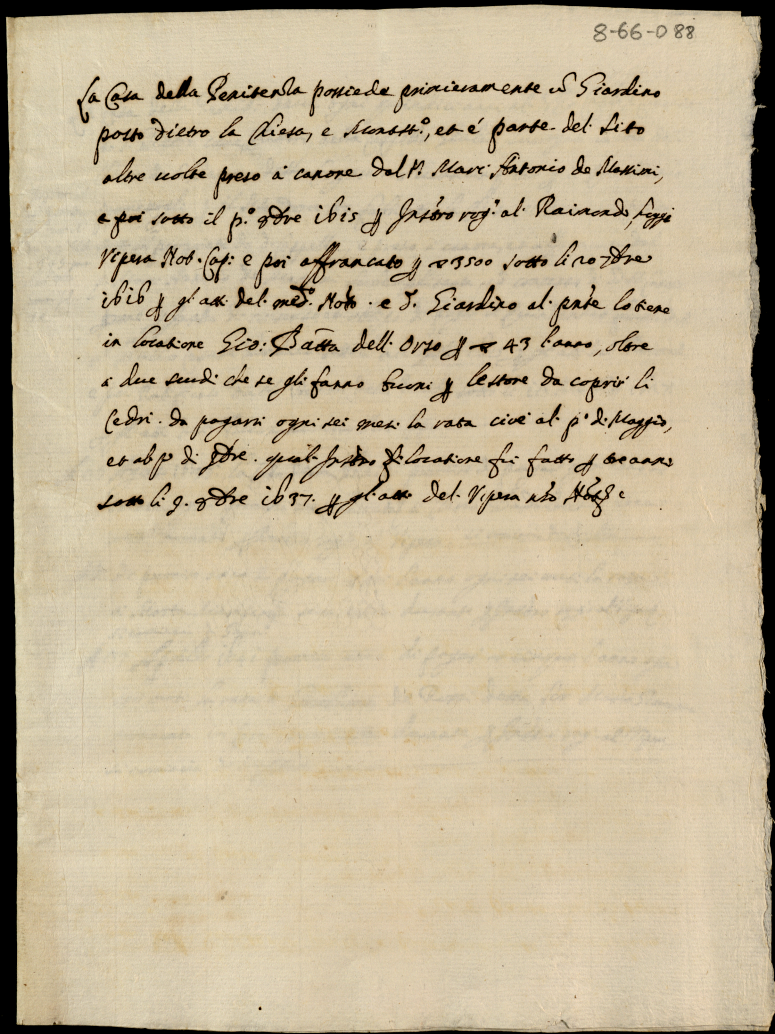 8-66-088
La Casa della Penitenza possiede primieramente un Giardino
posto dietro la Chiesa, e Monast.º, et é parte del sito
altre uolte preso à canone dal P. Marc Antonio de Massimi,
e poi sotto il p.º 8bre 1615 per Instro rog.º al Raimondo, hoggi
Vipera Not. Cap: e poi affrancato per 3500 sotto li 20 7bre
1616 per gl'atti del med.º Notº. e d. Giardino al pnte lo tiene
in locatione Gio: Batta dell'Orso per 43 l'anno, oltre
à due scudi che se gli fanno buoni per le store da coprir li
Cedri. da pagarsi ogni sei mesi la rata cioè al p.º di Maggio,
et al pº di 9bre. qual Instro di locatione fù fatto per tre anni
sotto li 9. 8bre 1637. per gl'atti del Vipera nro